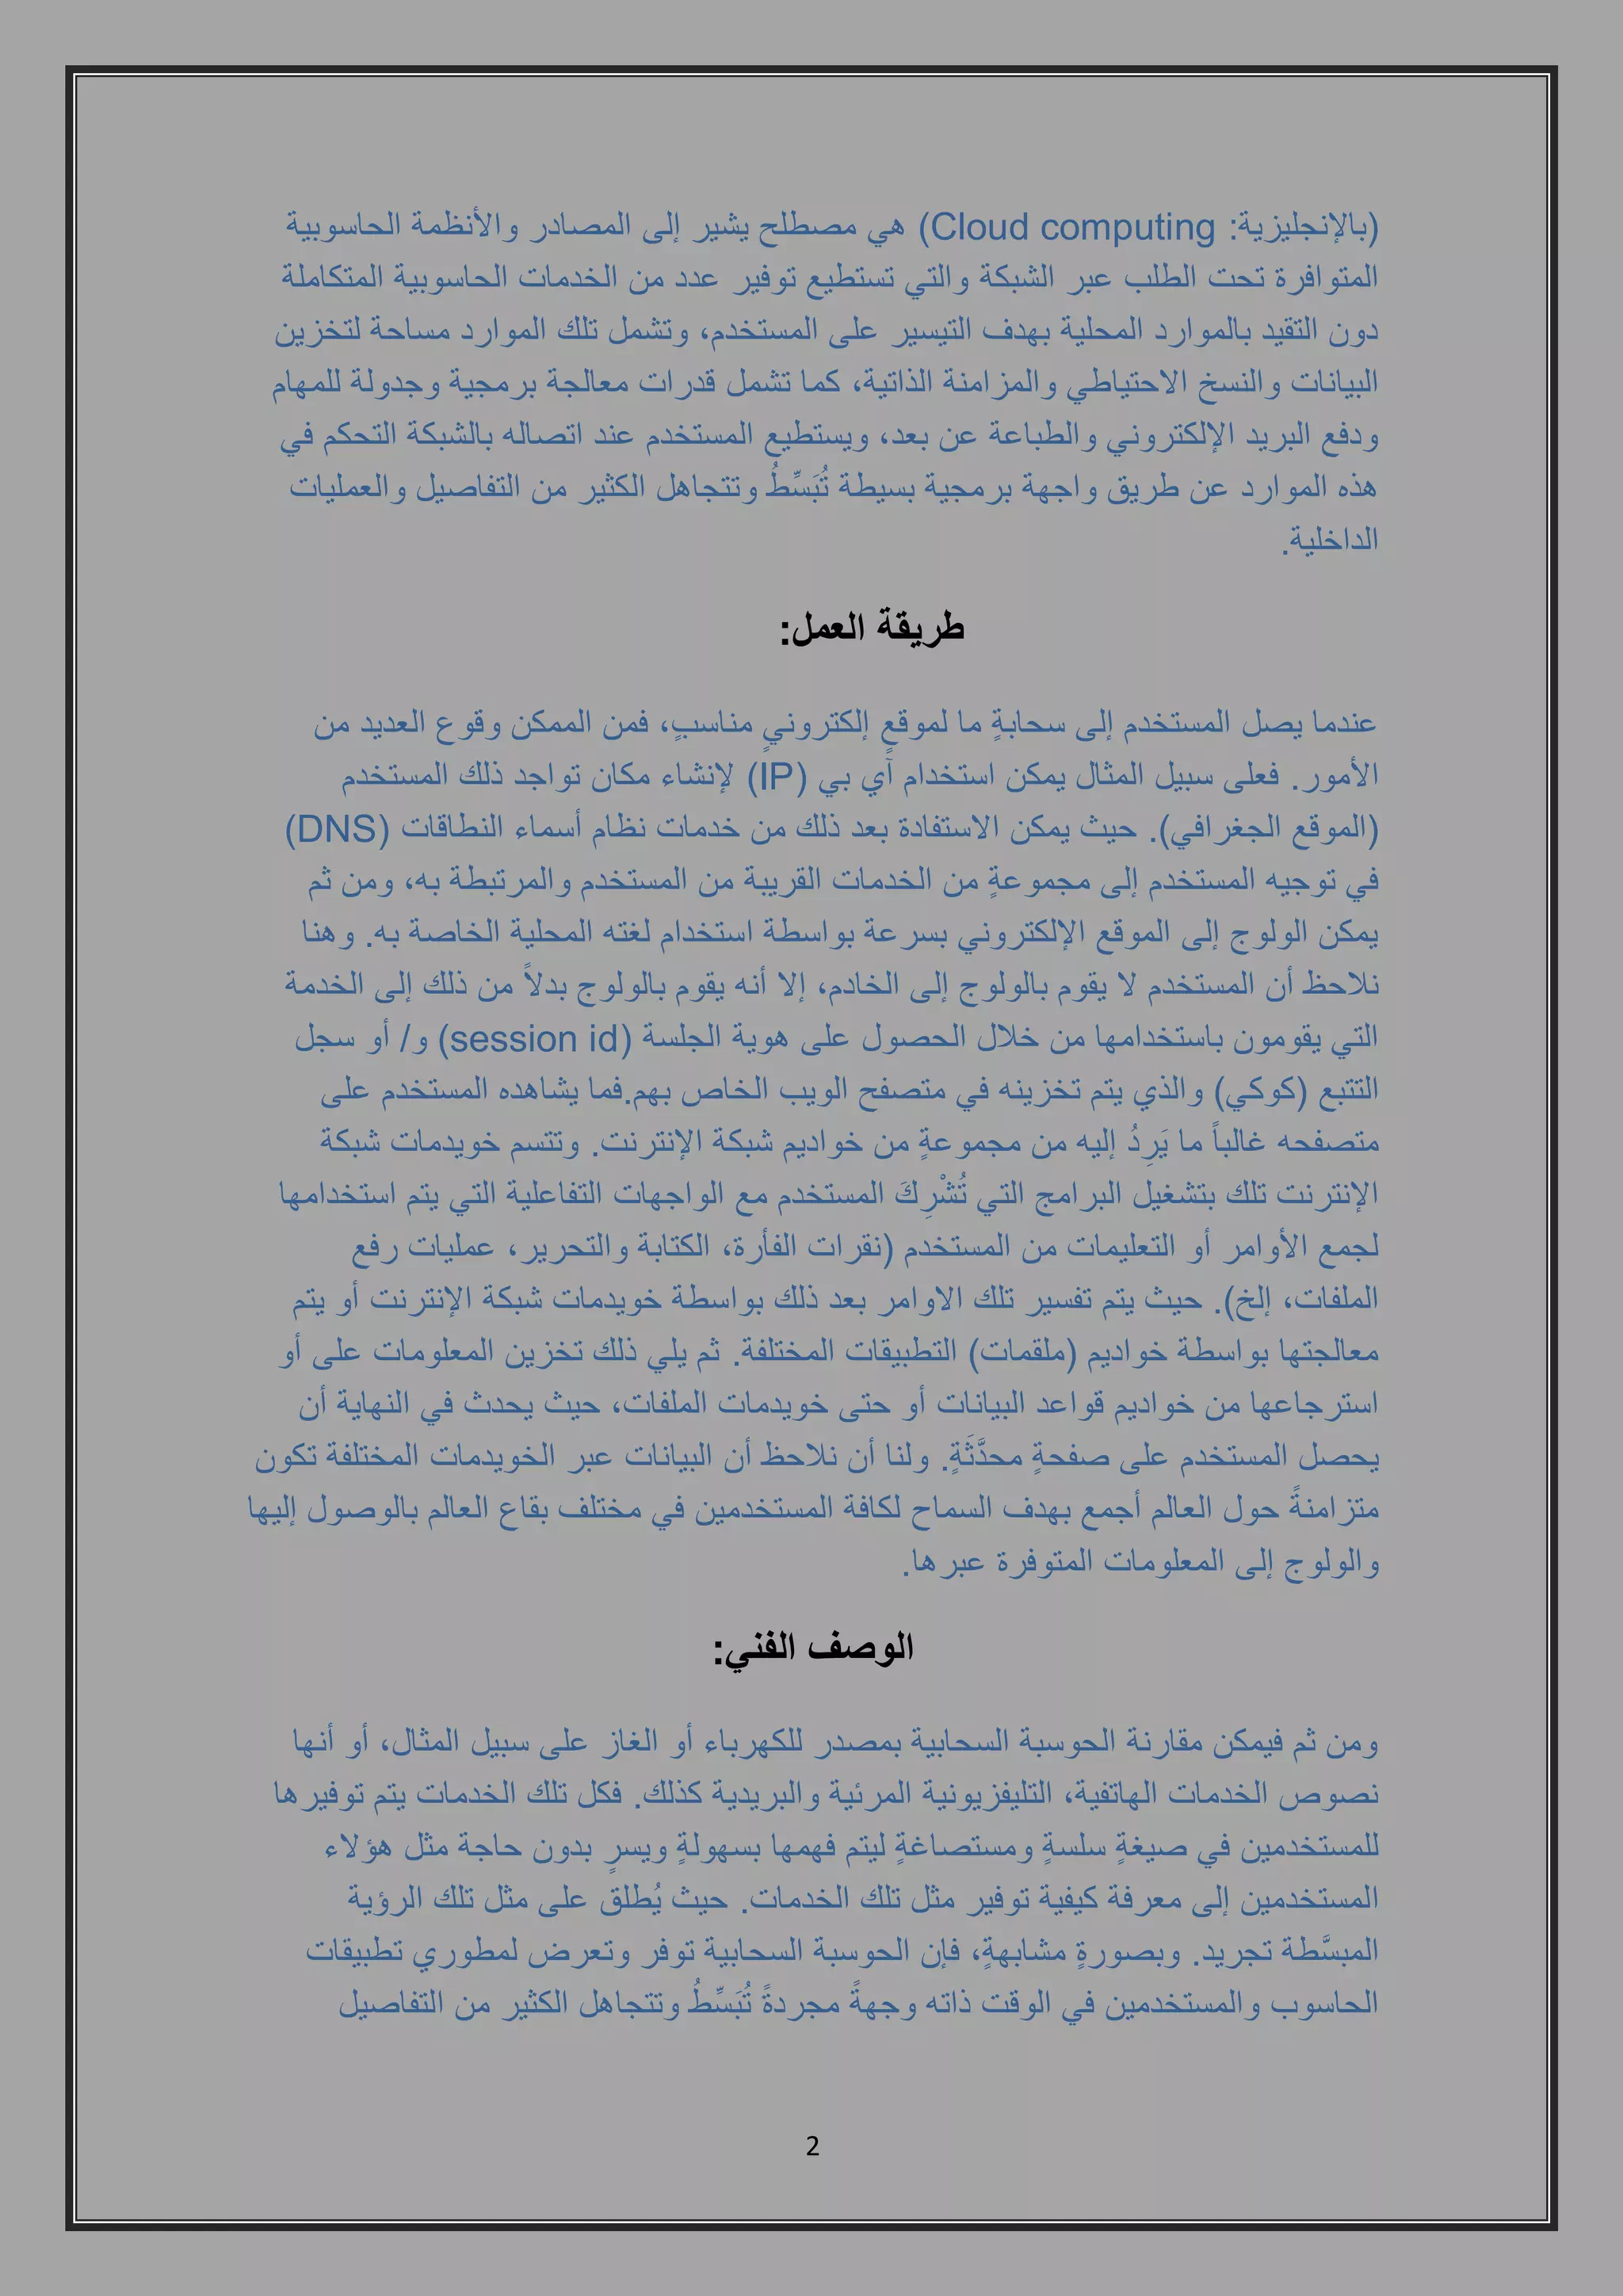 (بالإنجليزية: Cloud computing) هي مصطلح يشير إلى المصادر والأنظمة الحاسوبية
المتوافرة تحت الطلب عبر الشبكة والتي تستطيع توفير عدد من الخدمات الحاسوبية المتكاملة
دون التقيد بالموارد المحلية بهدف التيسير على المستخدم، وتشمل تلك الموارد مساحة لتخزين
البيانات والنسخ الاحتياطي والمزامنة الذاتية، كما تشمل قدرات معالجة برمجية وجدولة للمهام
ودفع البريد الإلكتروني والطباعة عن بعد، ويستطيع المستخدم عند اتصاله بالشبكة التحكم في
هذه الموارد عن طريق واجهة برمجية بسيطة تُبَسِّطُ وتتجاهل الكثير من التفاصيل والعمليات
الداخلية.
طريقة العمل:
عندما يصل المستخدم إلى سحابةٍ ما لموقعٍ إلكترونيٍ مناسبٍ، فمن الممكن وقوع العديد من
الأمور. فعلى سبيل المثال يمكن استخدام آي بي (IP) لإنشاء مكان تواجد ذلك المستخدم
(الموقع الجغرافي). حيث يمكن الاستفادة بعد ذلك من خدمات نظام أسماء النطاقات (DNS)
في توجيه المستخدم إلى مجموعةٍ من الخدمات القريبة من المستخدم والمرتبطة به، ومن ثم
يمكن الولوج إلى الموقع الإلكتروني بسرعة بواسطة استخدام لغته المحلية الخاصة به. وهنا
نلاحظ أن المستخدم لا يقوم بالولوج إلى الخادم، إلا أنه يقوم بالولوج بدلاً من ذلك إلى الخدمة
التي يقومون باستخدامها من خلال الحصول على هوية الجلسة (session id) و/ أو سجل
التتبع (كوكي) والذي يتم تخزينه في متصفح الويب الخاص بهم.فما يشاهده المستخدم على
متصفحه غالباً ما يَرِدُ إليه من مجموعةٍ من خواديم شبكة الإنترنت. وتتسم خويدمات شبكة
الإنترنت تلك بتشغيل البرامج التي تُشْرِكَ المستخدم مع الواجهات التفاعلية التي يتم استخدامها
لجمع الأوامر أو التعليمات من المستخدم (نقرات الفأرة، الكتابة والتحرير، عمليات رفع
الملفات، إلخ). حيث يتم تفسير تلك الاوامر بعد ذلك بواسطة خويدمات شبكة الإنترنت أو يتم
معالجتها بواسطة خواديم (ملقمات) التطبيقات المختلفة. ثم يلي ذلك تخزين المعلومات على أو
استرجاعها من خواديم قواعد البيانات أو حتى خويدمات الملفات، حيث يحدث في النهاية أن
يحصل المستخدم على صفحةٍ محدَّثَةٍ. ولنا أن نلاحظ أن البيانات عبر الخويدمات المختلفة تكون
متزامنةً حول العالم أجمع بهدف السماح لكافة المستخدمين في مختلف بقاع العالم بالوصول إليها
والولوج إلى المعلومات المتوفرة عبرها.
الوصف الفني:
ومن ثم فيمكن مقارنة الحوسبة السحابية بمصدر للكهرباء أو الغاز على سبيل المثال، أو أنها
نصوص الخدمات الهاتفية، التليفزيونية المرئية والبريدية كذلك. فكل تلك الخدمات يتم توفيرها
للمستخدمين في صيغةٍ سلسةٍ ومستصاغةٍ ليتم فهمها بسهولةٍ ويسرٍ بدون حاجة مثل هؤلاء
المستخدمين إلى معرفة كيفية توفير مثل تلك الخدمات. حيث يُطلق على مثل تلك الرؤية
المبسَّطة تجريد. وبصورةٍ مشابهةٍ، فإن الحوسبة السحابية توفر وتعرض لمطوري تطبيقات
الحاسوب والمستخدمين في الوقت ذاته وجهةً مجردةً تُبَسِّطُ وتتجاهل الكثير من التفاصيل
2